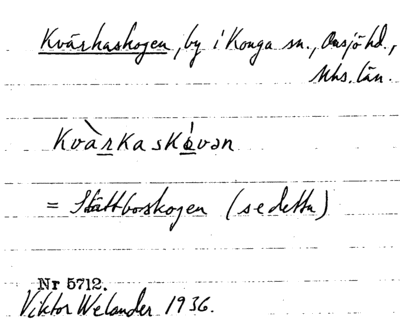 Kvärkaskogen, by i Konga sn., Onsjö hd.,
Mhs. län.
Kvàrkaskóvən
= Slättboskogen (se detta)
Nr 5712.
Viktor Welander 1936.